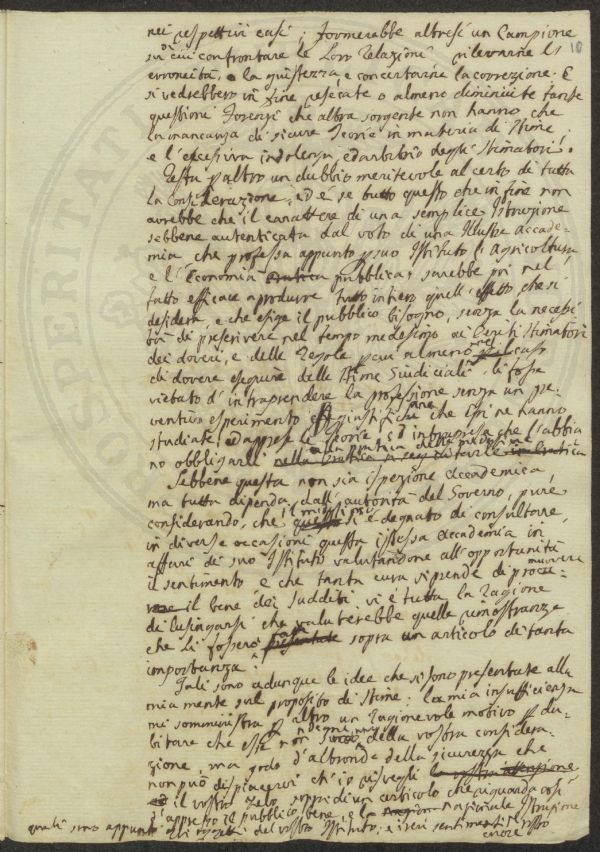 10
nei respettivi casi; formerebbe altresì un Campione
su di cui confrontare le loro Relazioni rilevarne l'
erroneità, o la giustezza, e concertarne la correzione. E
si vedrebbero in fine resecate o almeno diminuite tante
questioni Forensi che altra sorgente non hanno che
la mancanza di sicure Teorie in materia di Stime,
e l'eccessiva indolenza, ed arbitrio degli Stimatori.
Resta p altro un dubbio meritevole al certo di tutta
la considerazione, ed è se tutto questo che in fine non
avrebbe che il carattere di una semplice Istruzione
sebbene autenticata dal voto di una Illustre Accade-
mia che professa appunto p suo Istituto l'Agricoltura
e l'Economia pubblica, sarebbe poi nel
tutto efficace a produrre tutto intiero quell'effetto che si
desidera, e che esige il pubblico bisogno, senza la necessi-
tà di prescrivere nel tempo medesimo ai Periti Stimatori
dei doveri, e delle Regole p cui almeno nel caso
di dovere eseguire delle Stime Giudiciali li fosse
vietato d'intraprendere la professione senza un pre-
ventivo esperimento che Essi ne hanno
studiate, ed apprese le Teorie, ed che l'abbia
no obbligarli nella Pratica
Sebbene questa non sia ispezione Accademica,
ma tutta dipenda dall'autorità del Governo, pure
considerando, che si è degnato di consultare
in diverse occasioni questa istessa Accademia in
affari di suo Istituto valutandone all'opportunità
il sentimento e che tanta cura si prende di promuovere
il bene dei Sudditi vi è tutta la Ragione
di lusingarsi che valuterebbe quelle rimostranze
che Li fossero fatte presentate sopra un articolo di tanta
importanza.
Tali sono adunque le idee che si sono presentate alla
mia mente sul proposito di Stime: la mia insufficienza
mi somministra p altro un ragionevole motivo p du-
bitare che esse non siano degne della vostra considera-
zione, ma godo d'altronde della sicurezza che
non può dispiacervi ch'io risvegli la vostra attenzione
ed il vostro zelo sopra di un articolo che riguarda così
d'appresso il pubblico bene, e la nazionale Istruzione
quali sono appunto gli oggetti del vostro Istituto, e i veri sentimenti del vostro
cuore